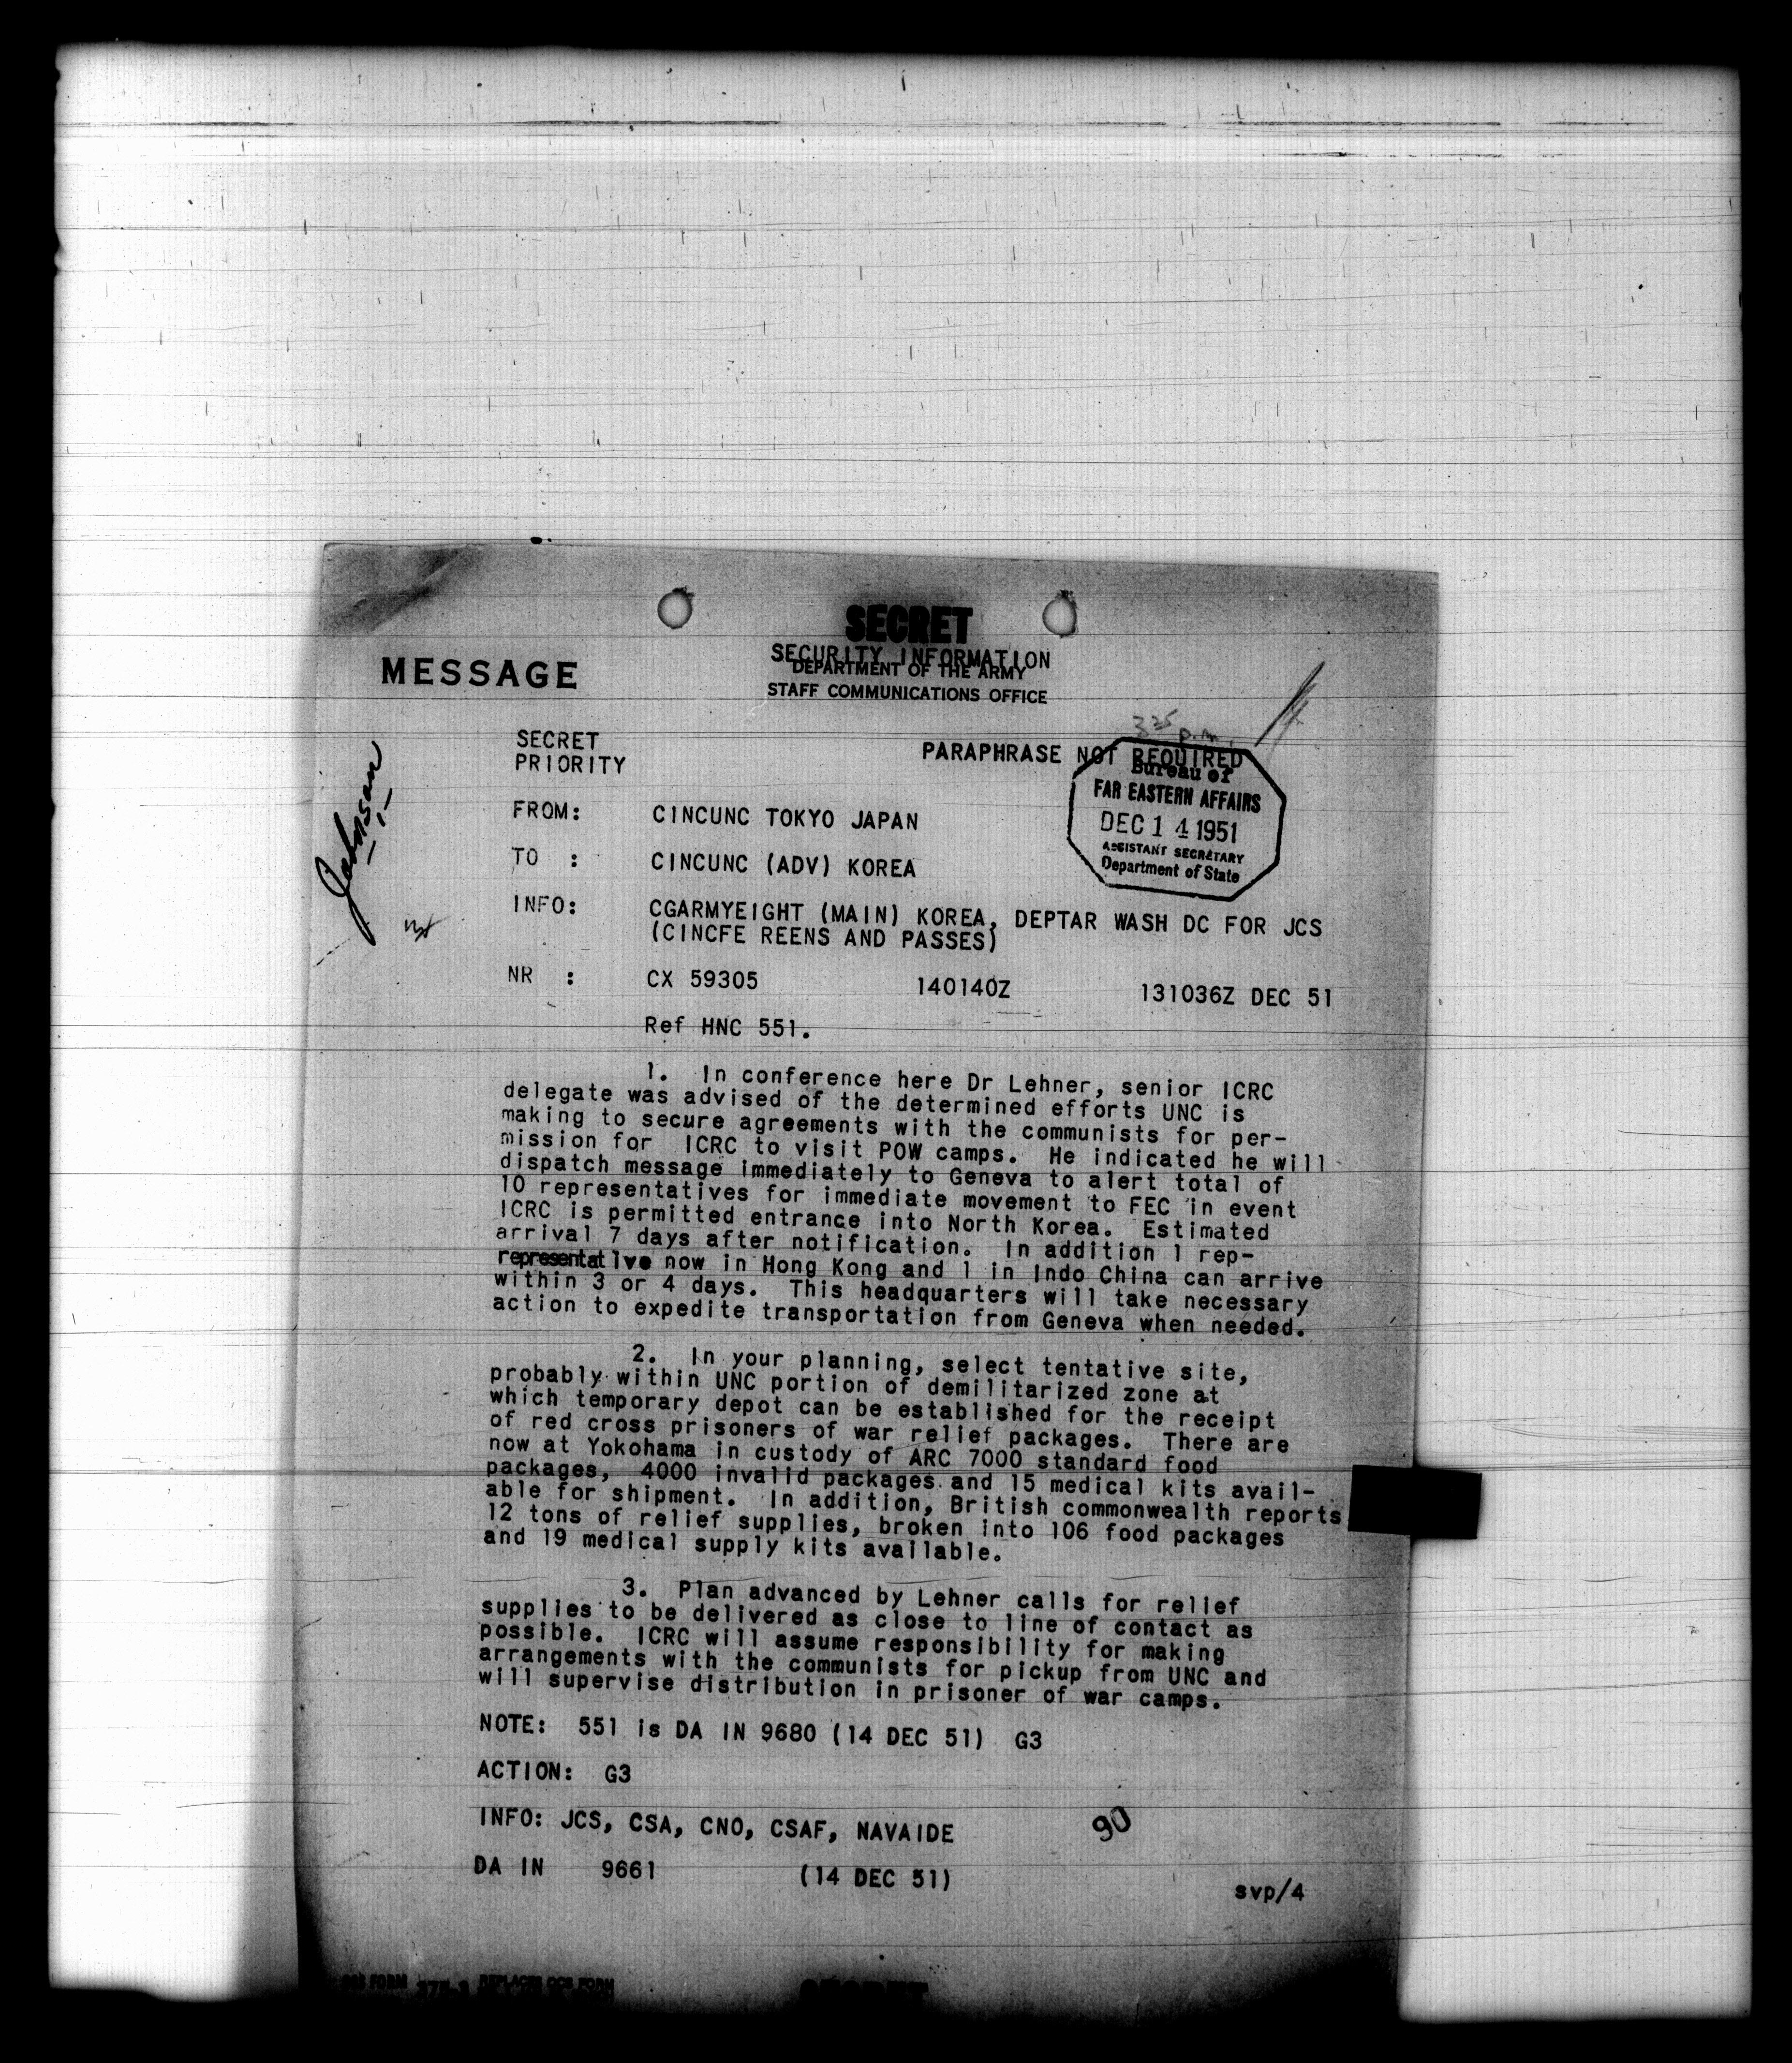 SECRET
SECURITY INFORMATION
DEPARTMENT OF THE ARMY
MESSAGE
STAFF COMMUNICATIONS OFFICE
335 p.m.
SECRET
PRIORITY
PARAPHRASE NOT REQUIRED
Bureau of
FAR EASTERN AFFAIRS
DEC 14 1951
ASSISTANT SECRETARY
Department of State
Johnson
FROM: CINCUNC TOKYO JAPAN
TO : CINCUNC (ADV) KOREA
INFO: CGARMYEIGHT (MAIN) KOREA, DEPTAR WASH DC FOR JCS
(CINCFE REENS AND PASSES)
NR : CX 59305 140140Z 131036Z DEC 51
Ref HNC 551.
1. In conference here Dr Lehner, senior ICRC
delegate was advised of the determined efforts UNC is
making to secure agreements with the communists for per-
mission for ICRC to visit POW camps. He indicated he will
dispatch message immediately to Geneva to alert total of
10 representatives for immediate movement to FEC in event
ICRC is permitted entrance into North Korea. Estimated
arrival 7 days after notification. In addition 1 rep-
representative now in Hong Kong and 1 in Indo China can arrive
within 3 or 4 days. This headquarters will take necessary
action to expedite transportation from Geneva when needed.
2. In your planning, select tentative site,
probably within UNC portion of demilitarized zone at
which temporary depot can be established for the receipt
of red cross prisoners of war relief packages. There are
now at Yokohama in custody of ARC 7000 standard food
packages, 4000 invalid packages and 15 medical kits avail-
able for shipment. In addition, British commonwealth reports
12 tons of relief supplies, broken into 106 food packages
and 19 medical supply kits available.
3. Plan advanced by Lehner calls for relief
supplies to be delivered as close to line of contact as
possible. ICRC will assume responsibility for making
arrangements with the communists for pickup from UNC and
will supervise distribution in prisoner of war camps.
NOTE: 551 is DA IN 9680 (14 DEC 51) G3
ACTION: G3
INFO: JCS, CSA, CNO, CSAF, NAVAIDE
90
DA IN 9661 (14 DEC 51)
svp/4
REPLACES OCS FORM
SECRET